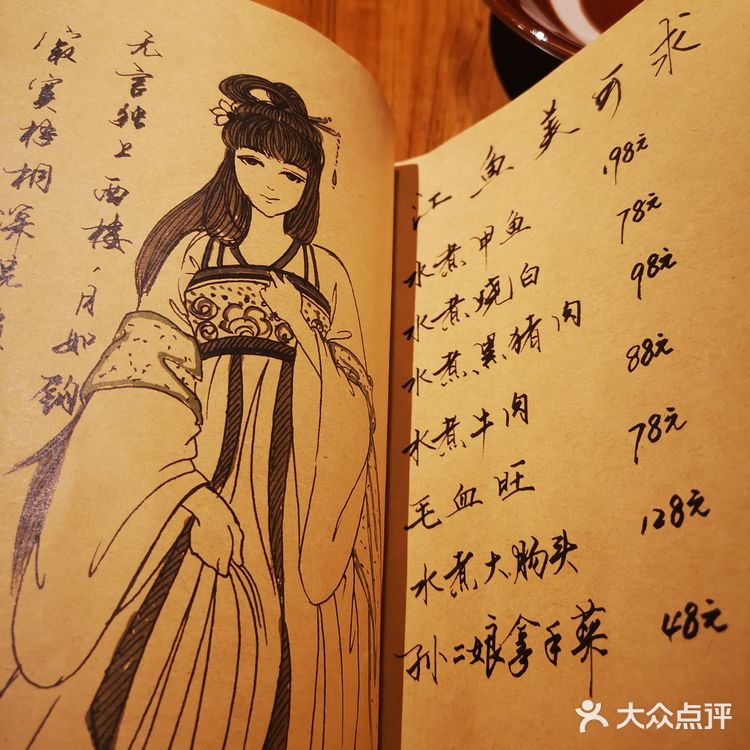 无言独上西楼，月如钩
寂寞梧桐深院
江鱼美可求
水煮甲鱼 198元
水煮烧白 78元
水煮黑猪肉 98元
水煮牛肉 88元
毛血旺 78元
水煮大肠头 128元
孙二娘拿手菜 48元
大众点评